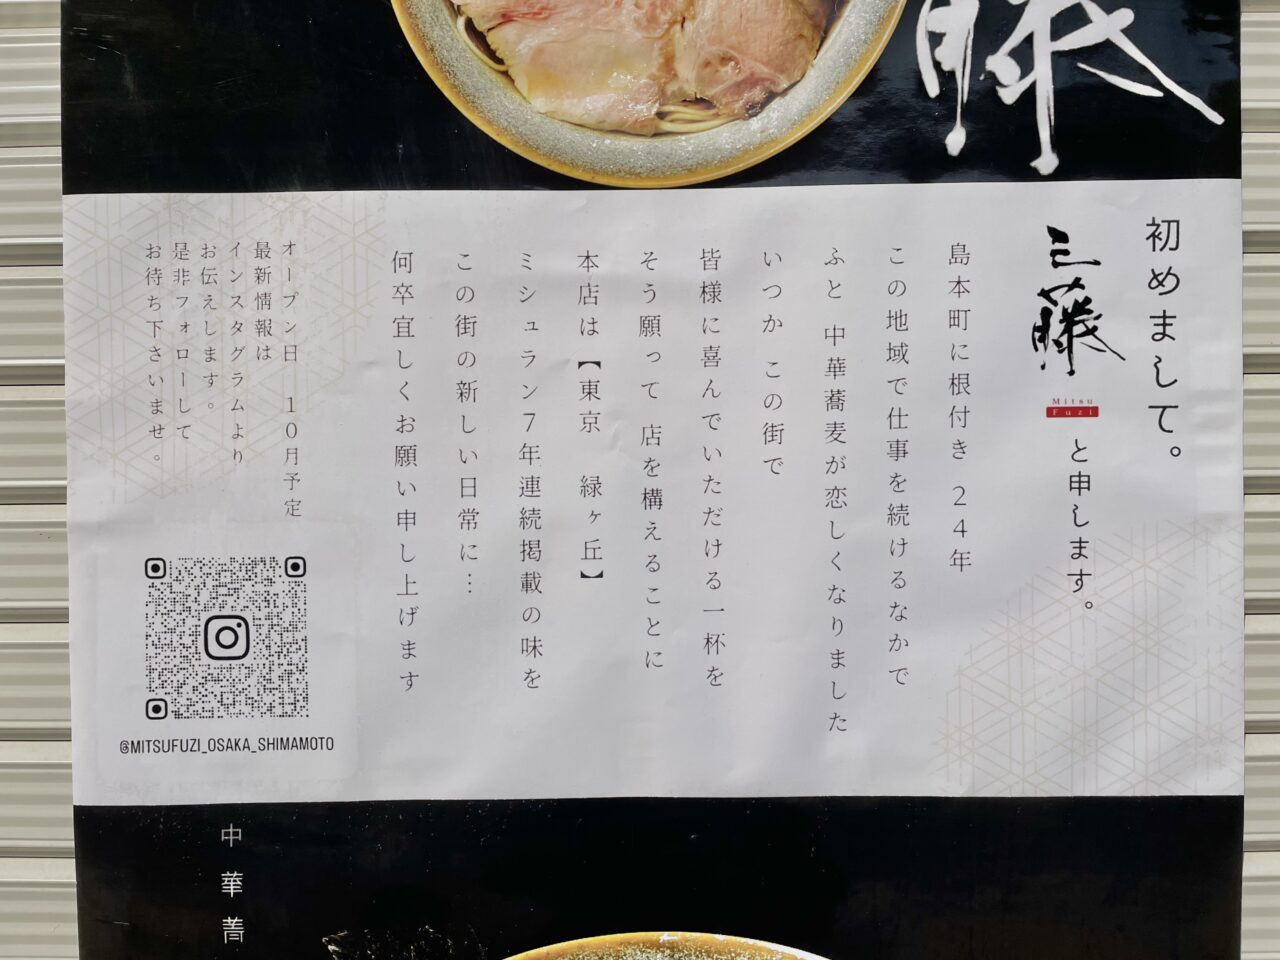 藤
初めまして。
三藤
Mitsu
Fuzi
と申します。
島本町に根付き 24年
この地域で仕事を続けるなかで
ふと 中華蕎麦が恋しくなりました
いつか この街で
皆様に喜んでいただける一杯を
そう願って 店を構えることに
本店は【東京 緑ヶ丘】
ミシュラン7年連続掲載の味を
この街の新しい日常に…
何卒宜しくお願い申し上げます
オープン日 10月予定
最新情報は
インスタグラムより
お伝えします。
是非フォローして
お待ち下さいませ。
@MITSUFUZI_OSAKA_SHIMAMOTO
中華蕎